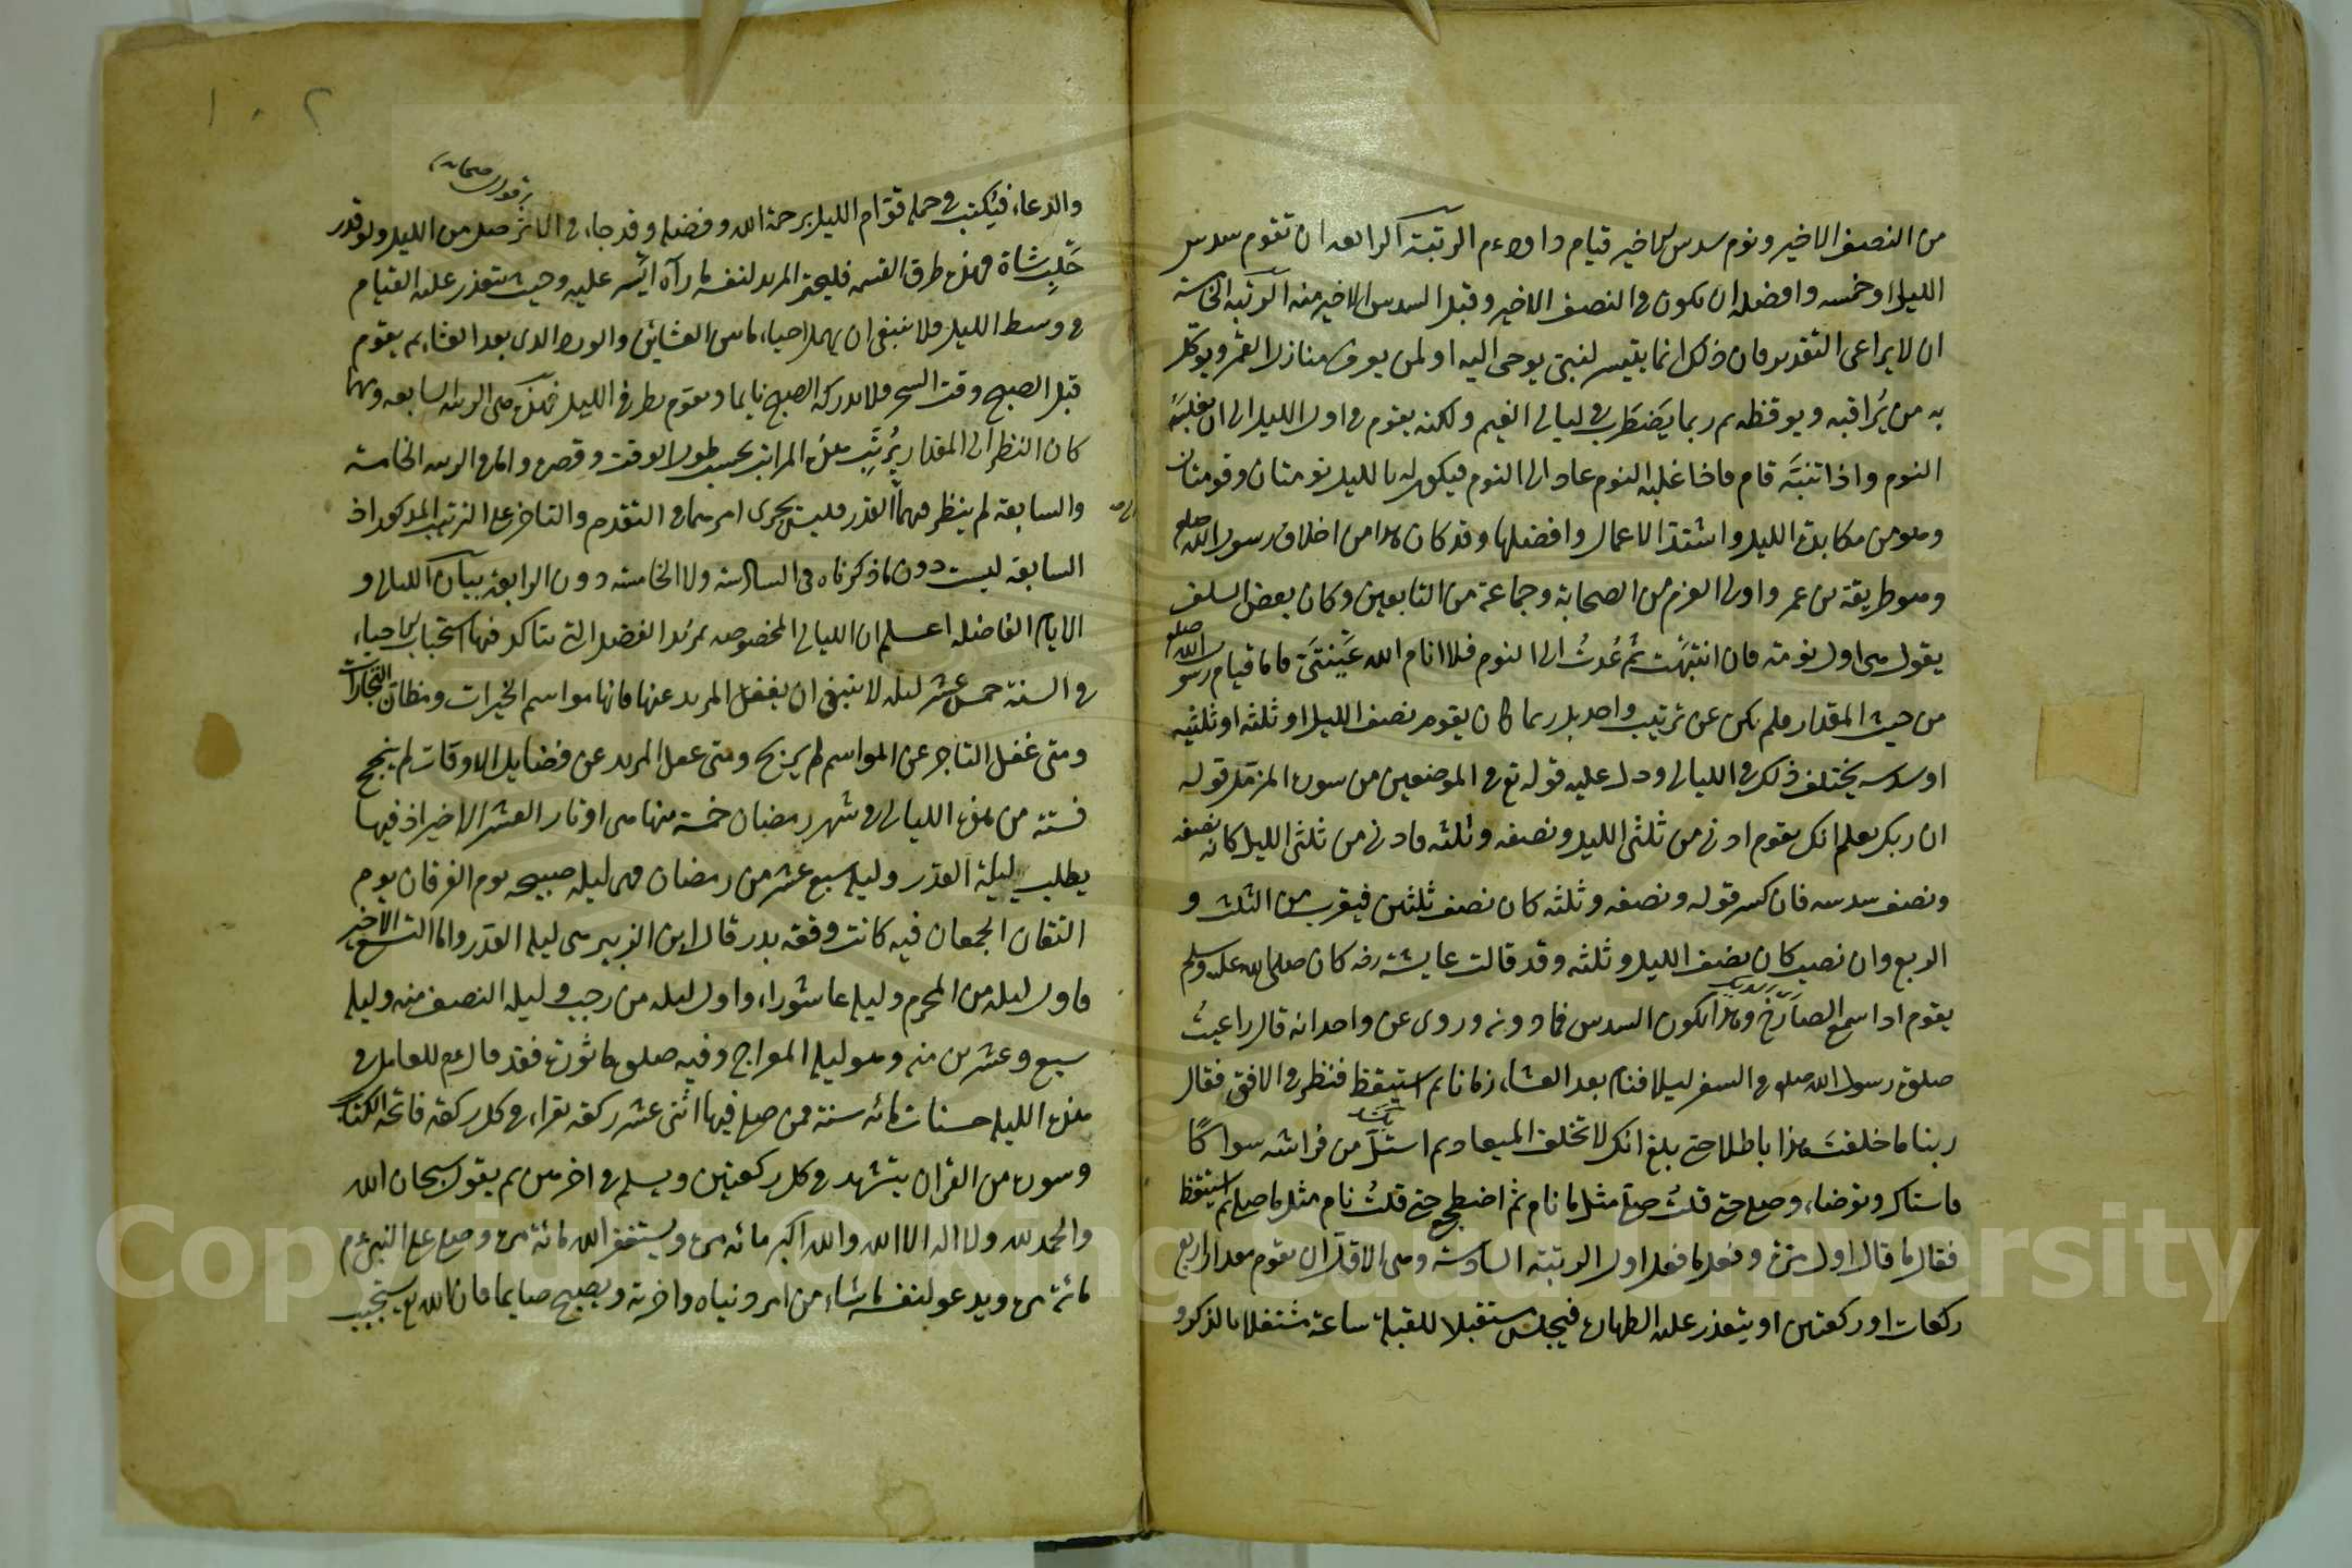 من النصف الاخير ونوم سدس الاخير قيام داود عم الرتبة الرابعه ان تقوم سدس
الليل او خمسه وافضله ان يكون في النصف الاخير وقبل السدس الاخير منه الرتبه الخامسة
ان لا يراعى التقدير فان ذلك انما يتيسر لنبي يوحى اليه او لمن يعرف منازل القمر ويوكل
به من يراقبه ويوقظه ثم ربما يضطرب في ليالي الغيم ولكنه يقوم في اول الليل الى ان يغلبه
النوم واذا انتبه قام فاذا غلبه النوم عاد الى النوم فيكون له بالليل نومتان وقومتان
وهو من مكابدة الليل واشد الاعمال وافضلها وقد كان هذا من اخلاق رسول الله صلعم
وهو طريقة بن عمر واولى العزم من الصحابة وجماعة من التابعين وكان بعض السلف
يقول هي اول نومة فان انتبهت ثم عدت الى النوم فلا انام الله عيني فاما قيام رسول الله صلعم
من حيث المقدار فلم يكن عن ترتيب واحد بل ربما كان يقوم نصف الليل او ثلثه او ثلثيه
او سدسه يختلف ذلك في الليالي ودل عليه قوله تع في الموضعين من سورة المزمل قوله
ان ربك يعلم انك تقوم ادنى من ثلثي الليل ونصفه وثلثه فادنى من ثلثي الليل كانه نصفه
ونصف سدسه فان كسر قوله ونصفه وثلثه كان نصف ثلثين فيقرب من الثلث و
الربع وان نصب كان نصف الليل وثلثه وقد قالت عايشة رضه كان صلى الله عليه وسلم
يقوم اذا سمع الصارخ وهذا يكون السدس فما دونه وروى عن واحد انه قال راعيت
صلوة رسول الله صلعم في السفر ليلا فنام بعد العشاء زمانا ثم استيقظ فنظر في الافق فقال
ربنا ما خلقت هذا باطلا حتى بلغ انك لا تخلف الميعاد ثم استل من فراشه سواكا
فاستاك وتوضاء وصلى حتى قلت صلى مثل ما نام ثم اضطجع حتى قلت نام مثل ما صلى ثم استيقظ
فقال ما قال اول مرة وفعل ما فعل اول الرتبة السادسة وهي الاقل ان يقوم مقدار اربع
ركعات او ركعتين او يتعذر عليه الطهارة فيجلس مستقبلا للقبلة ساعة مشتغلا بالذكر و
والدعاء فيكتب في جملة قوام الليل برحمة الله وفضله وقد جاء في الاثر صل من الليل ولو قدر
حلب شاة فهذه طرق القسمه فليختر المريد لنفسه ما رآه ايسر عليه وحيث يتعذر عليه القيام
في وسط الليل فلا ينبغي ان يهمل احياء ما بين العشائين والورد الذي بعد العشاء ثم يقوم
قبل الصبح وقت السحر فلا يدركه الصبح نايما ويقوم بطرفي الليل فهذه هي الرتبة السابعه ومهما
كان النظر الى المقدار يرتب هذه المراتب بحسب طول الوقت وقصره واما في الرتبه الخامسة
والسابعة لم ينظر فيهما الى القدر فليس يجرى امرهما في التقدم والتاخر على الترتيب المذكور اذ
السابعه ليست دون ما ذكرناه في السادسة ولا الخامسة دون الرابعة بيان الليالي و
الايام الفاضله اعلم ان الليالي المخصوصه بمزيد الفضل التي يتاكد فيها استحباب الاحياء
في السنة خمس عشر ليله لا ينبغي ان يغفل المريد عنها فانها مواسم الخيرات ومظان التجارات
ومتى غفل التاجر عن المواسم لم يربح ومتى غفل المريد عن فضايل الاوقات لم ينجح
فستة من هذه الليالي في شهر رمضان خمسة منها هي اوتار العشر الاخير اذ فيها
يطلب ليلة القدر وليلة سبع عشر من رمضان فهي ليلة صبيحه يوم الفرقان يوم
التقان الجمعان فيه كانت وقعه بدر قال ابن الزبير هي ليلة القدر واما التسع الاخر
فاول ليله من المحرم وليلة عاشوراء واول ليله من رجب وليلة النصف منه وليلة
سبع وعشرين منه وهو ليلة المعراج وفيه صلوة ماثورة فقد قال عم للعامل في
هذه الليلة حسنات مائه سنة فمن صلى فيها اثنى عشر ركعه يقراء في كل ركعة فاتحة الكتاب
وسورة من القران يتشهد في كل ركعتين ويسلم في اخرهن ثم يقول سبحان الله
والحمد لله ولا اله الا الله والله اكبر مائه مرة ويستغفر الله مائة مرة وصلى على النبي عم
مائة مرة ويدعو لنفسه ما شاء من امر دنياه واخرته ويصبح صايما فان الله تع يستجيب
١٠٢
Copyright © King Saud University